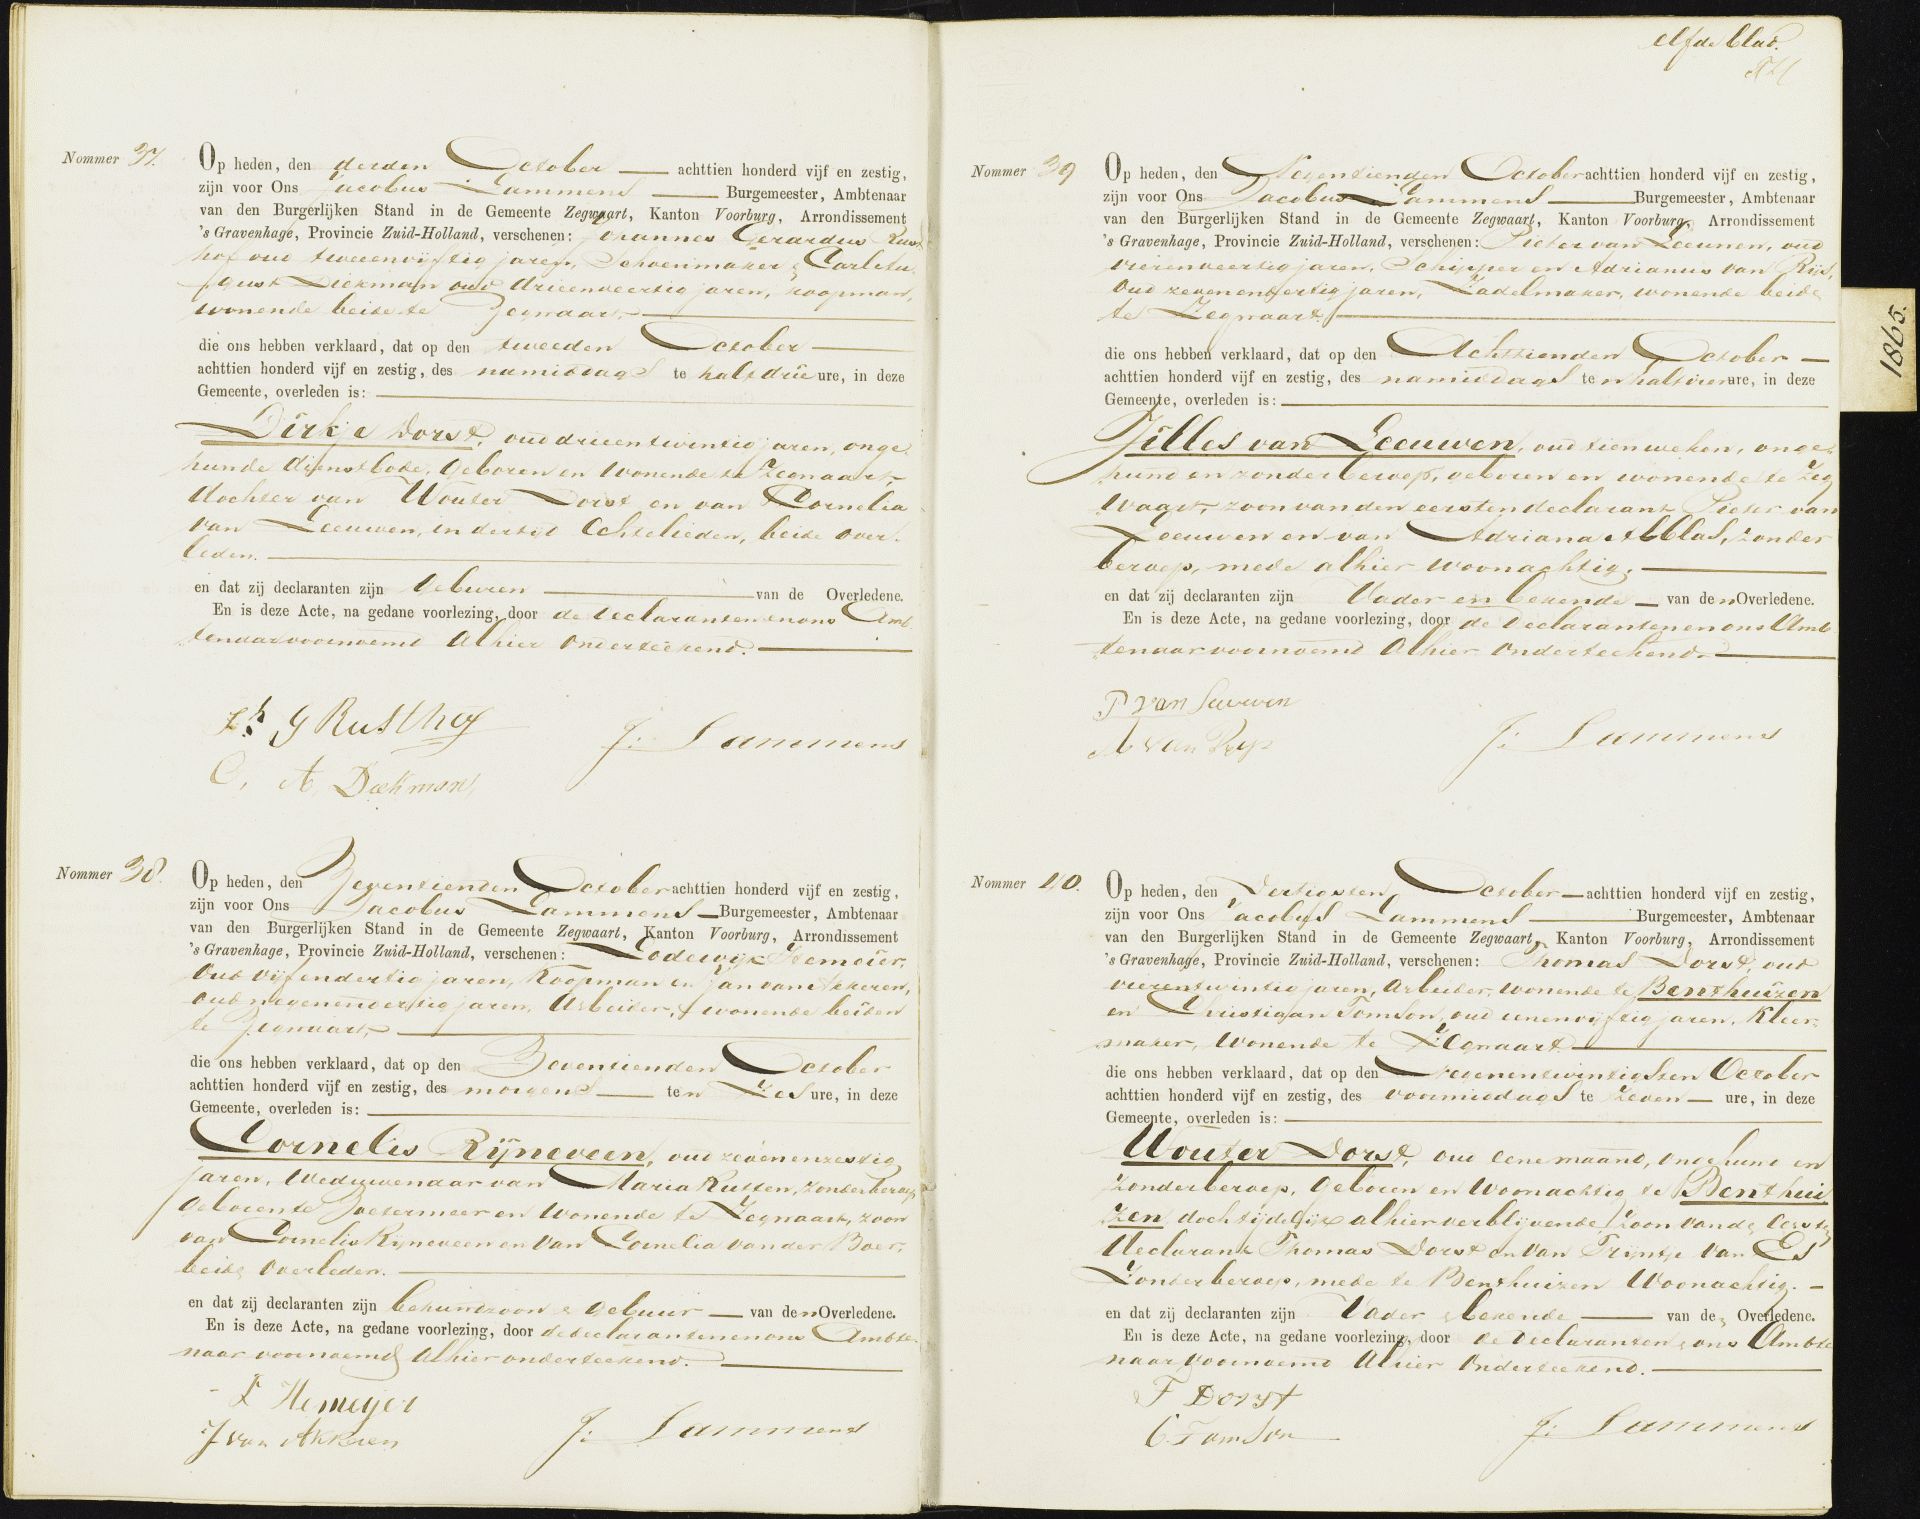 elfde blad.
Nommer 37.
Op heden, den derden October achttien honderd vijf en zestig,
zijn voor Ons Jacobus Lammens Burgemeester, Ambtenaar
van den Burgerlijken Stand in de Gemeente Zegwaart, Kanton Voorburg, Arrondissement
's Gravenhage, Provincie Zuid-Holland, verschenen: Johannes Gerardus Rust
hof oud tweeenvijftig jaren, Schoenmaker & Carl Au
gust Diekman oud drieenveertig jaren, koopman,
wonende beide te Zegwaart.
die ons hebben verklaard, dat op den tweeden October
achttien honderd vijf en zestig, des namiddags te half drie ure, in deze
Gemeente, overleden is:
Dirkje Dorst, oud drieentwintig jaren, onge
huwde dienstbode, geboren en wonende te Zegwaart,
dochter van Wouter Dorst en van Cornelia
van Leeuwen, in dertijd Echtelieden, beide over
leden.
en dat zij declaranten zijn geburen van de Overledene.
En is deze Acte, na gedane voorlezing, door de declaranten en ons Amb
tenaar voornoemd Alhier onderteekend.
Jh G Rusthof
J: Lammens
C. A. Diekman
Nommer 38.
Op heden, den Zeventienden October achttien honderd vijf en zestig,
zijn voor Ons Jacobus Lammens Burgemeester, Ambtenaar
van den Burgerlijken Stand in de Gemeente Zegwaart, Kanton Voorburg, Arrondissement
's Gravenhage, Provincie Zuid-Holland, verschenen: Lodewijk Hemeier,
oud vijfendertig jaren, Koopman en Jan van Akkeren,
oud negenendertig jaren, Arbeider, wonende beiden
te Zegwaart,
die ons hebben verklaard, dat op den Zeventienden October
achttien honderd vijf en zestig, des morgens ten Zes ure, in deze
Gemeente, overleden is:
Cornelis Rijneveen, oud zevenenzestig
jaren, Weduwenaar van Maria Rutten, zonder beroep,
geboren te Zoetermeer en wonende te Zegwaart, zoon
van Cornelis Rijneveen en van Cornelia van der Boer,
beide overleden.
en dat zij declaranten zijn behuwdzoon & gebuur van den Overledene.
En is deze Acte, na gedane voorlezing, door de declaranten en ons Ambte
naar voornoemd Alhier onderteekend.
L Hemeijer
J van Akkeren
J: Lammens
Nommer 39
Op heden, den Negentienden October achttien honderd vijf en zestig,
zijn voor Ons Jacobus Lammens Burgemeester, Ambtenaar
van den Burgerlijken Stand in de Gemeente Zegwaart, Kanton Voorburg, Arrondissement
's Gravenhage, Provincie Zuid-Holland, verschenen: Pieter van Leeuwen, oud
vierenveertig jaren, Schipper en Adrianus van Rijs,
oud zevenenveertig jaren, Zadelmaker, wonende beide
te Zegwaart
die ons hebben verklaard, dat op den Achttienden October
achttien honderd vijf en zestig, des namiddags ten half vier ure, in deze
Gemeente, overleden is:
Jilles van Leeuwen, oud tien weken, onge
huwd en zonder beroep, geboren en wonende te Zeg
waart, zoon van den eersten declarant Pieter van
Leeuwen en van Adriana Abblas, zonder
beroep, mede alhier woonachtig.
en dat zij declaranten zijn Vader en bekende van den Overledene.
En is deze Acte, na gedane voorlezing, door de Declaranten en ons Amb
tenaar voornoemd Alhier onderteekend.
P van Leeuwen
A van Rijs
J: Lammens
Nommer 40.
Op heden, den Dertigsten October achttien honderd vijf en zestig,
zijn voor Ons Jacobus Lammens Burgemeester, Ambtenaar
van den Burgerlijken Stand in de Gemeente Zegwaart, Kanton Voorburg, Arrondissement
's Gravenhage, Provincie Zuid-Holland, verschenen: Thomas Dorst, oud
vierentwintig jaren, Arbeider, wonende te Benthuizen
en Christiaan Tomson, oud eenenvijftig jaren, Kleer
maker, wonende te Zegwaart
die ons hebben verklaard, dat op den Negenentwintigsten October
achttien honderd vijf en zestig, des voormiddags te Zeven ure, in deze
Gemeente, overleden is:
Wouter Dorst, oud eene maand, ongehuwd en
zonder beroep, geboren en woonachtig te Benthui
zen doch tijdelijk alhier verblijvende zoon van de eerste
declarant Thomas Dorst en van Trijntje van Es
zonder beroep, mede te Benthuizen Woonachtig.
en dat zij declaranten zijn Vader & bekende van de Overledene.
En is deze Acte, na gedane voorlezing, door de Declaranten & ons Ambte
naar voornoemd Alhier onderteekend.
T Dorst
C. Tomson
J: Lammens
1865.